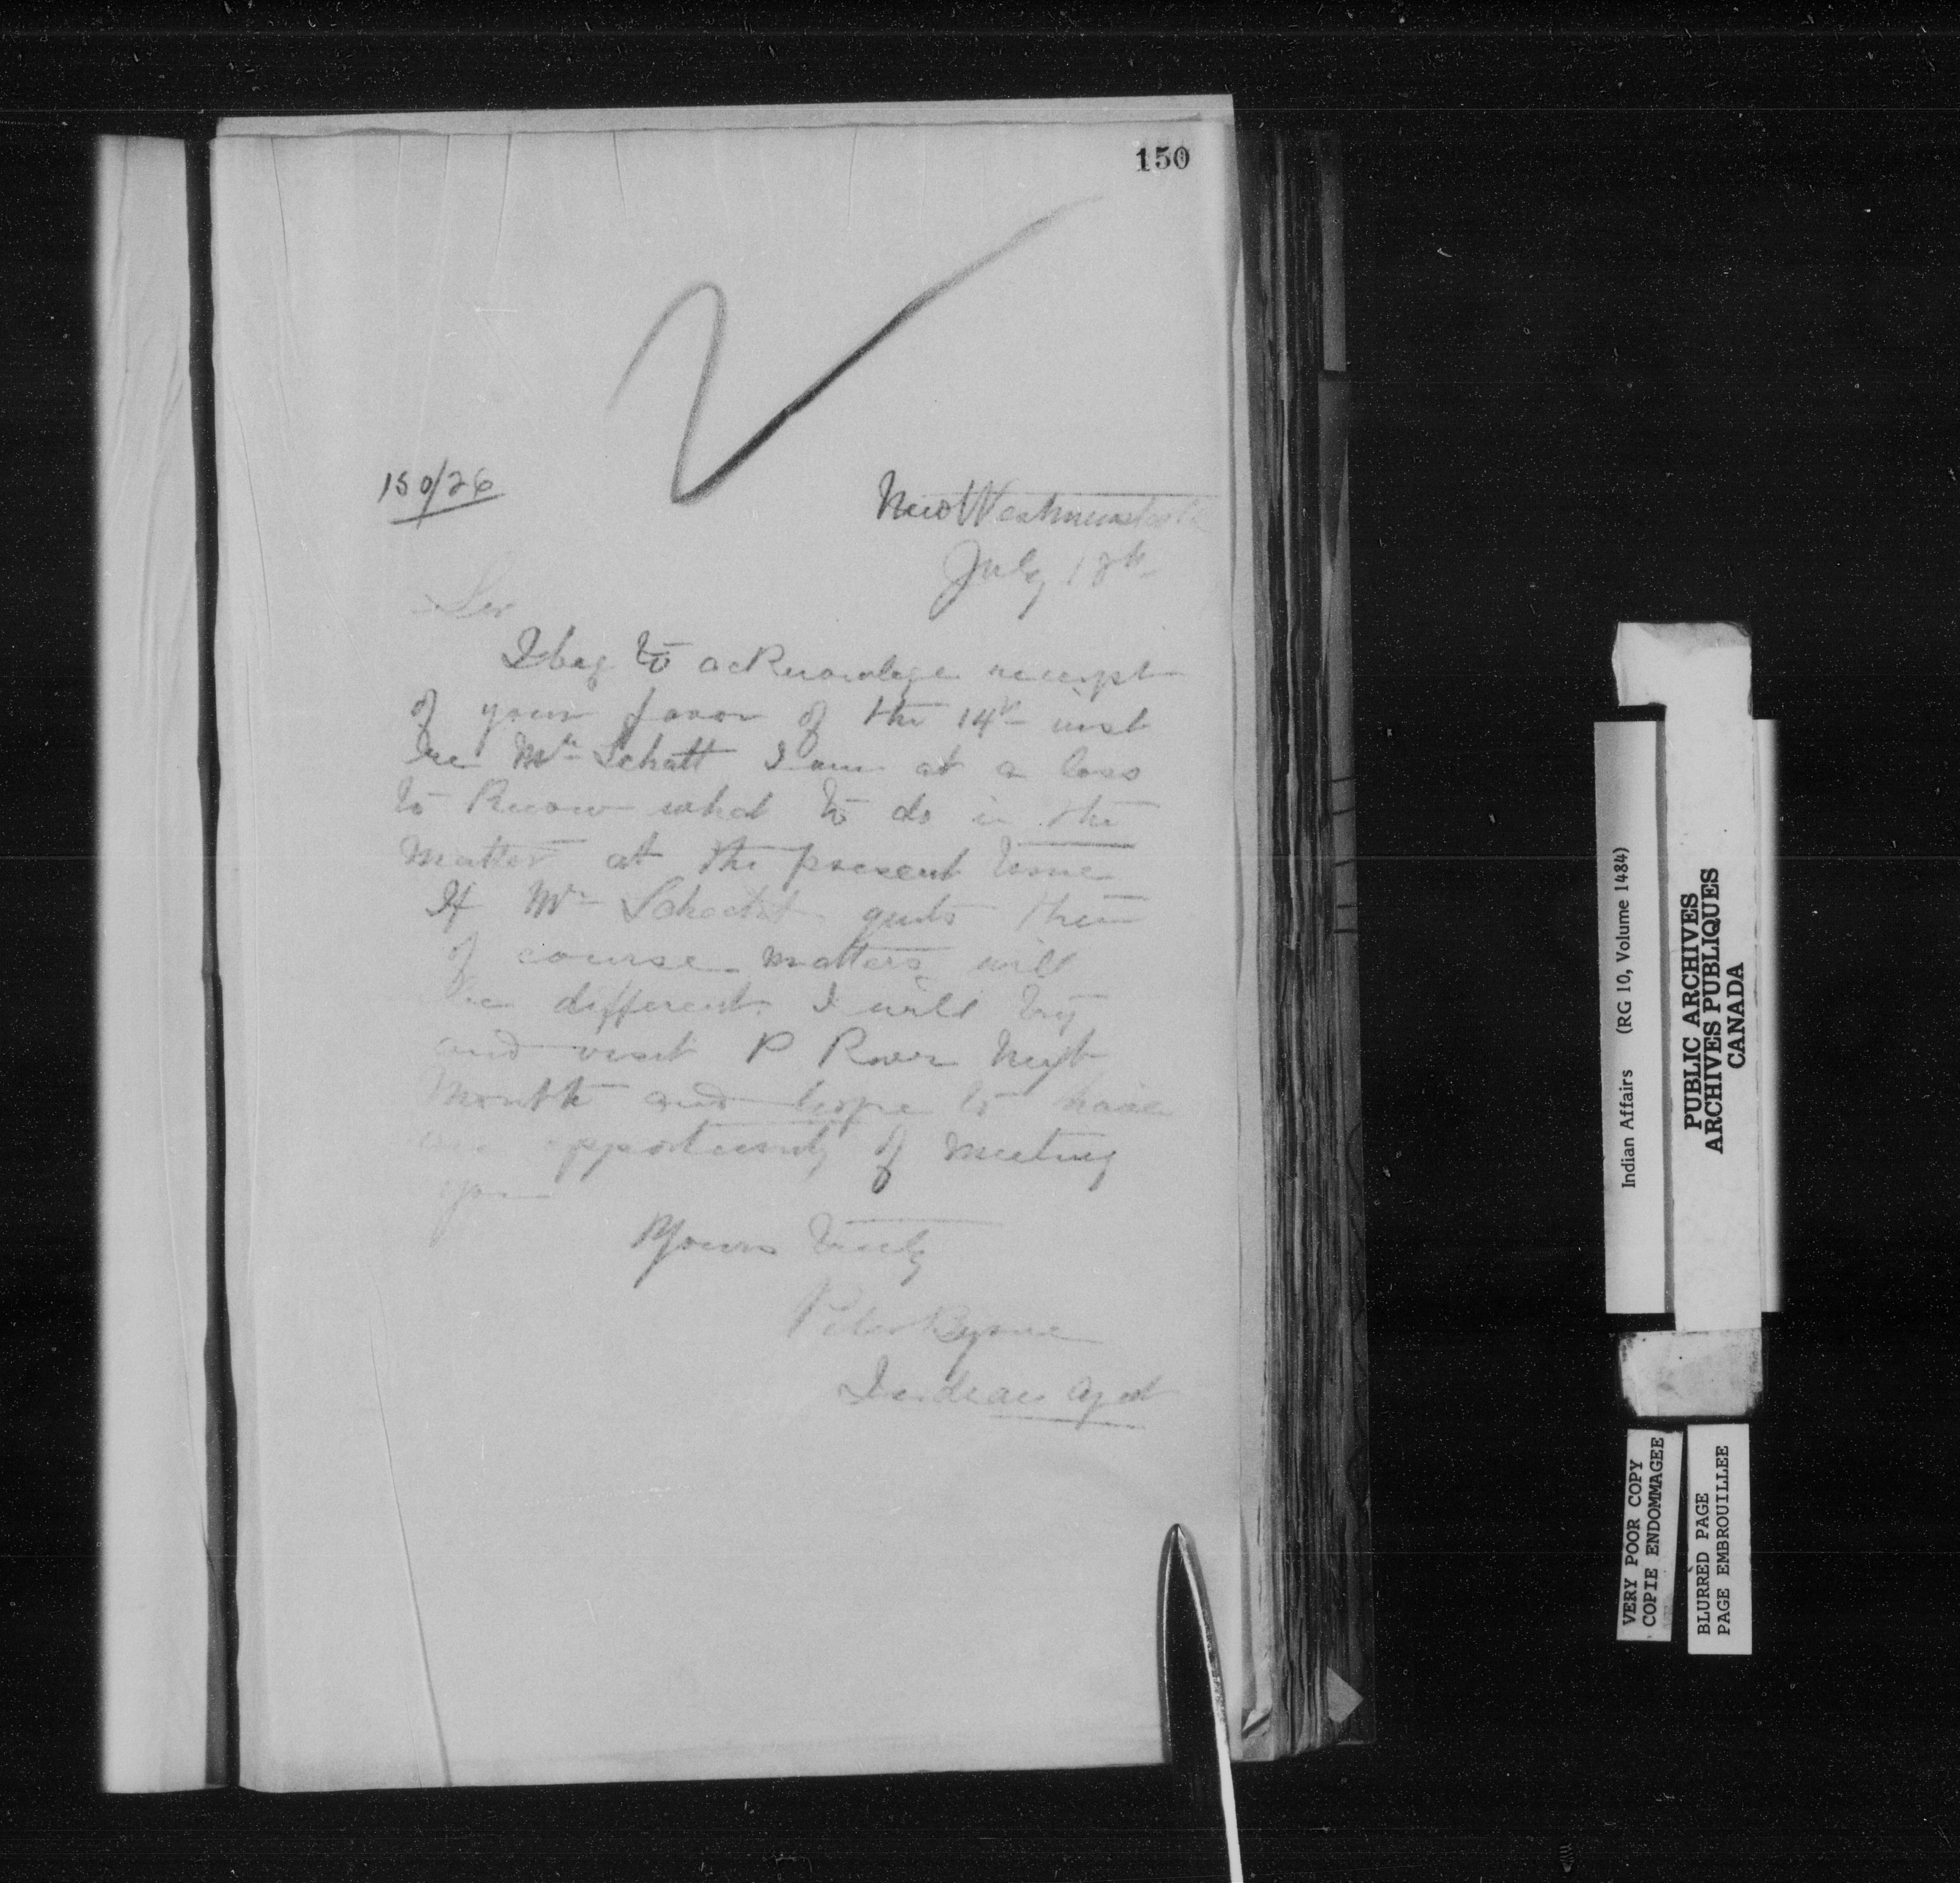 150
150/26
New Westminster
July 18th
Sir
I beg to acknowlege receipt
of your favor of the 14th inst
re Mr Schatt I am at a loss
to Know what to do in the
matter at the present time
If Mr quits then
of course matters will
be different. I will try
and visit P River Next
Month and hope to have
an opportunity of meeting
you
Yours Truly
Peter Byrne
Indian Agent
Indian Affairs (RG 10, Volume 1484)
PUBLIC ARCHIVES
ARCHIVES PUBLIQUES
CANADA
VERY POOR COPY
COPIE ENDOMMAGEE
BLURRED PAGE
PAGE EMBROUILLEE